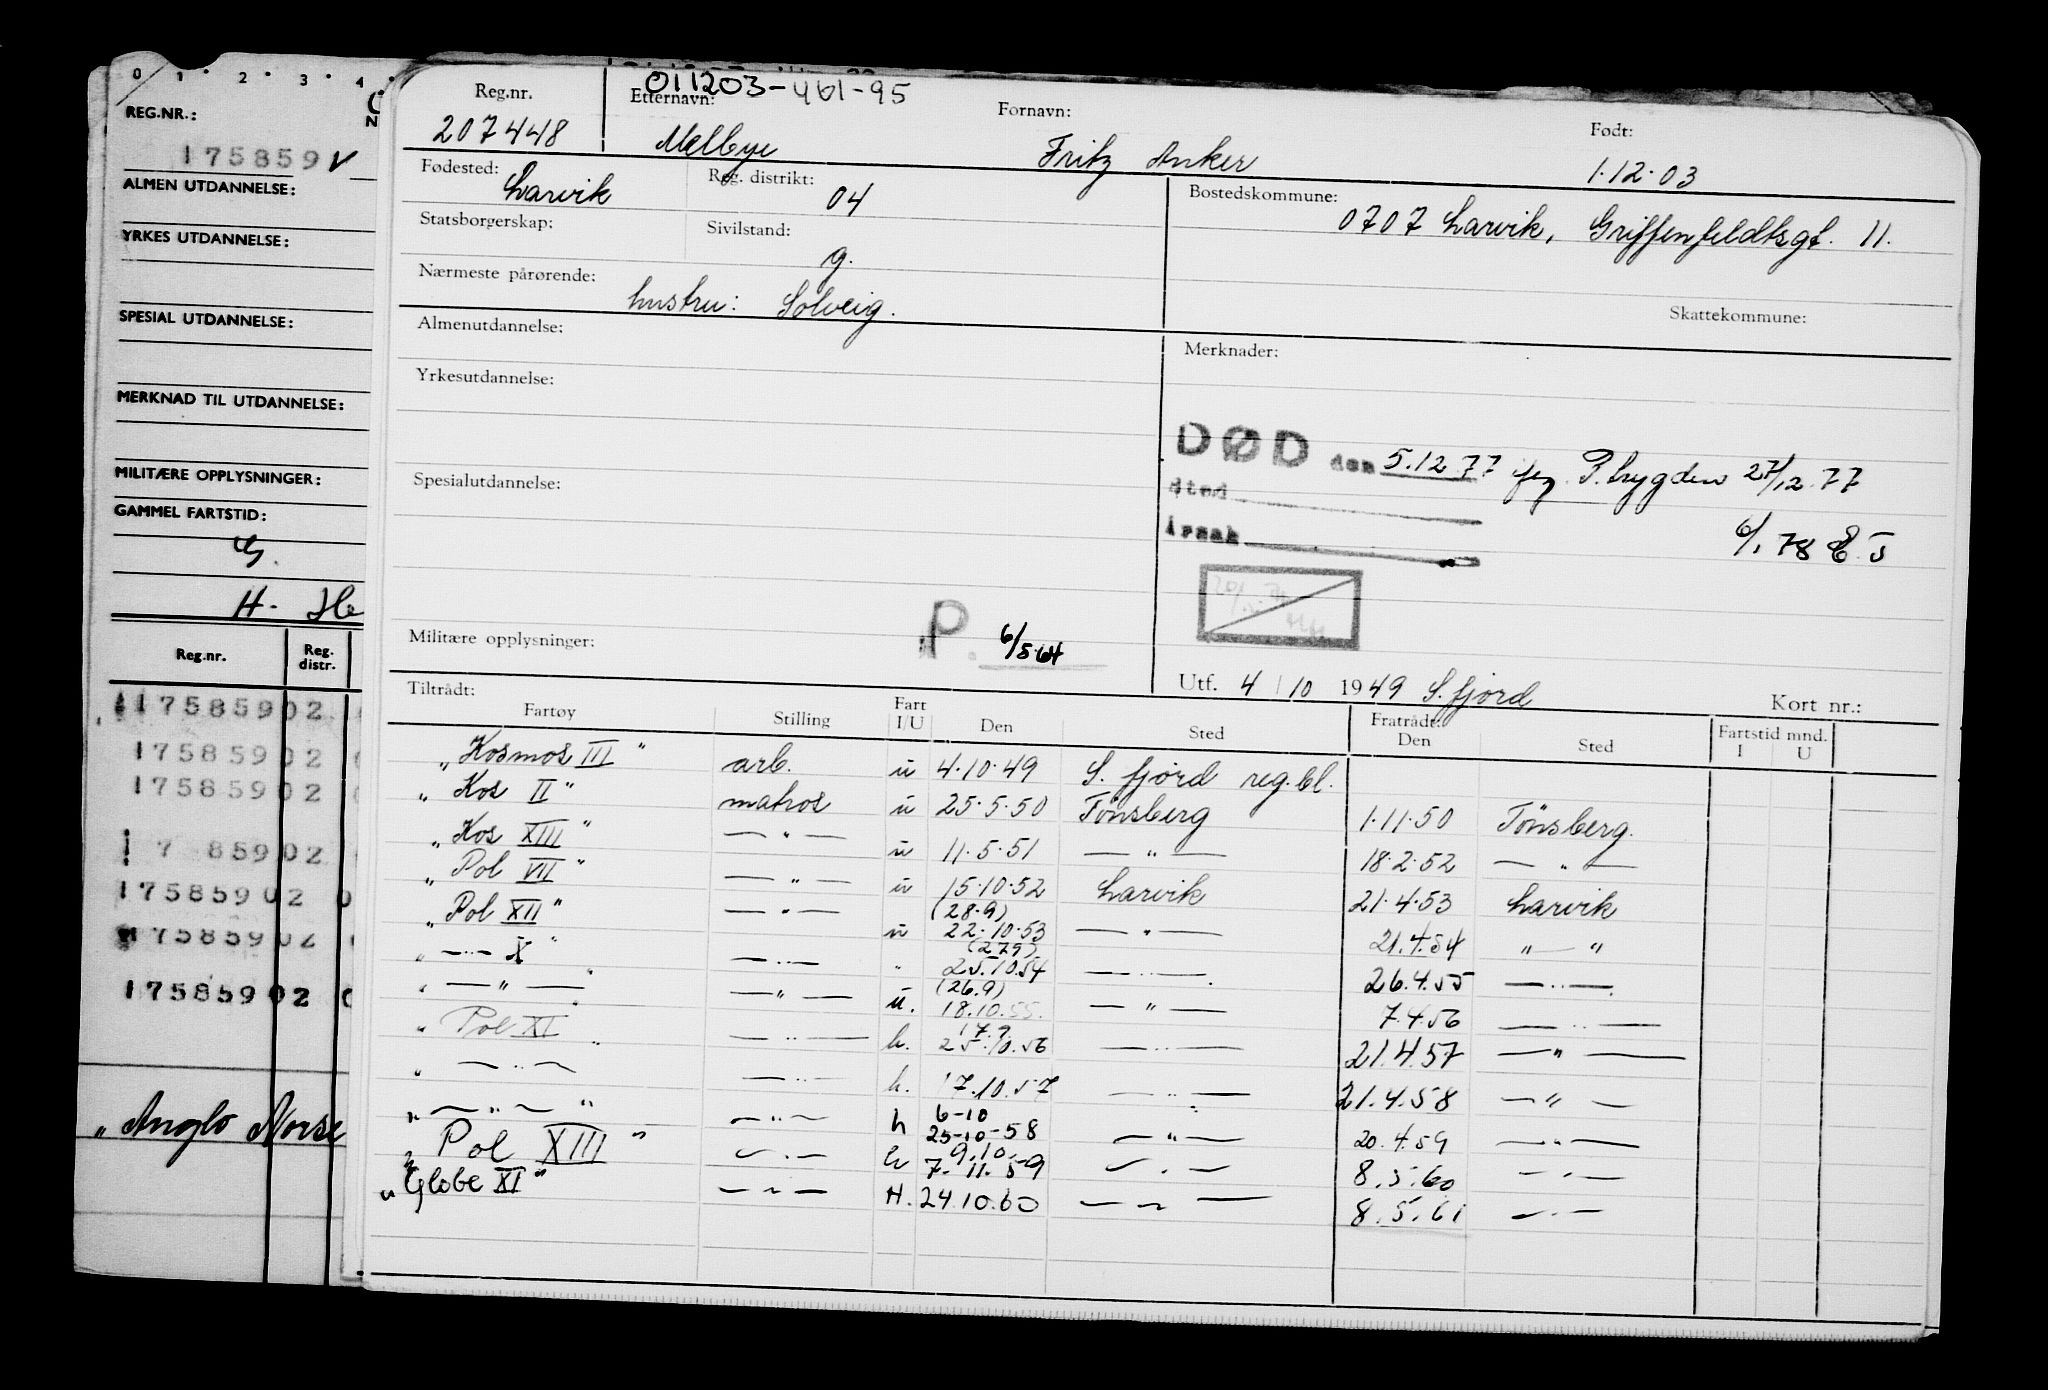 0 1 2 3 4
REG.NR.: N
175859 V
ALMEN UTDANNELSE:
YRKES UTDANNELSE:
SPESIAL UTDANNELSE:
MERKNAD TIL UTDANNELSE:
MILITÆRE OPPLYSNINGER:
GAMMEL FARTSTID:
H.
Reg.nr. Reg. distr.
175859 02
175859 02
175859 02
1 7 859 02
175859 02 0
75859 02
175859 02 0
„ Anglo Norse
011203-461-95
Reg.nr. Etternavn: Fornavn: Født:
207448 Melbye Fritz Anker 1.12.03
Fødested: Larvik Reg. distrikt: 04 Bostedskommune: 0707 Larvik, Griffenfeldtsgt. 11.
Statsborgerskap: Sivilstand: g.
Nærmeste pårørende: hustru: Solveig.
Skattekommune:
Almenutdannelse: Merknader:
Yrkesutdannelse:
DØD den 5.12.77 27/12.77
Spesialutdannelse: sted
årsak 6/1 78
Militære opplysninger: P. 6/5 64
Utf. 4/10 1949 S. fjord Kort nr.:
Tiltrådt: Fratrådt: Fartstid mnd.
Fartøy Stilling Fart I/U Den Sted Den Sted I U
„ Kosmos III " arb. u 4.10.49 S. fjord reg.bl.
„ Kos II " matros u 25.5.50 Tönsberg 1.11.50 Tönsberg.
„ Kos XIII " — " — u 11.5.51 — " — 18.2.52 — " —
„ Pol VII " — " — u 15.10.52 Larvik 21.4.53 Larvik
„ Pol XII " — " — u (28.9) 22.10.53 — " — 21.4.54 " — "
„ — " — X " — " — " (27.9) 25.10.54 — " — 26.4.55 — " —
„ — " — " — " — u. (26.9) 18.10.55. — " — 7.4.56 — " —
„ Pol XI " — " — h. 17.9. 25.10.56 — " — 21.4.57 — " —
„ — " — — " — h. 17.10.57 — " — 21.4.58 — " —
„ — " — " — " — h 6-10 25-10-58 — " — 20.4.59 — " —
„ Pol XIII " — " — h 9.10.- 7.11.59 — " — 8.5.60 — " —
„ Globe XI " — " — H. 24.10.60 — " — 8.5.61 — " —